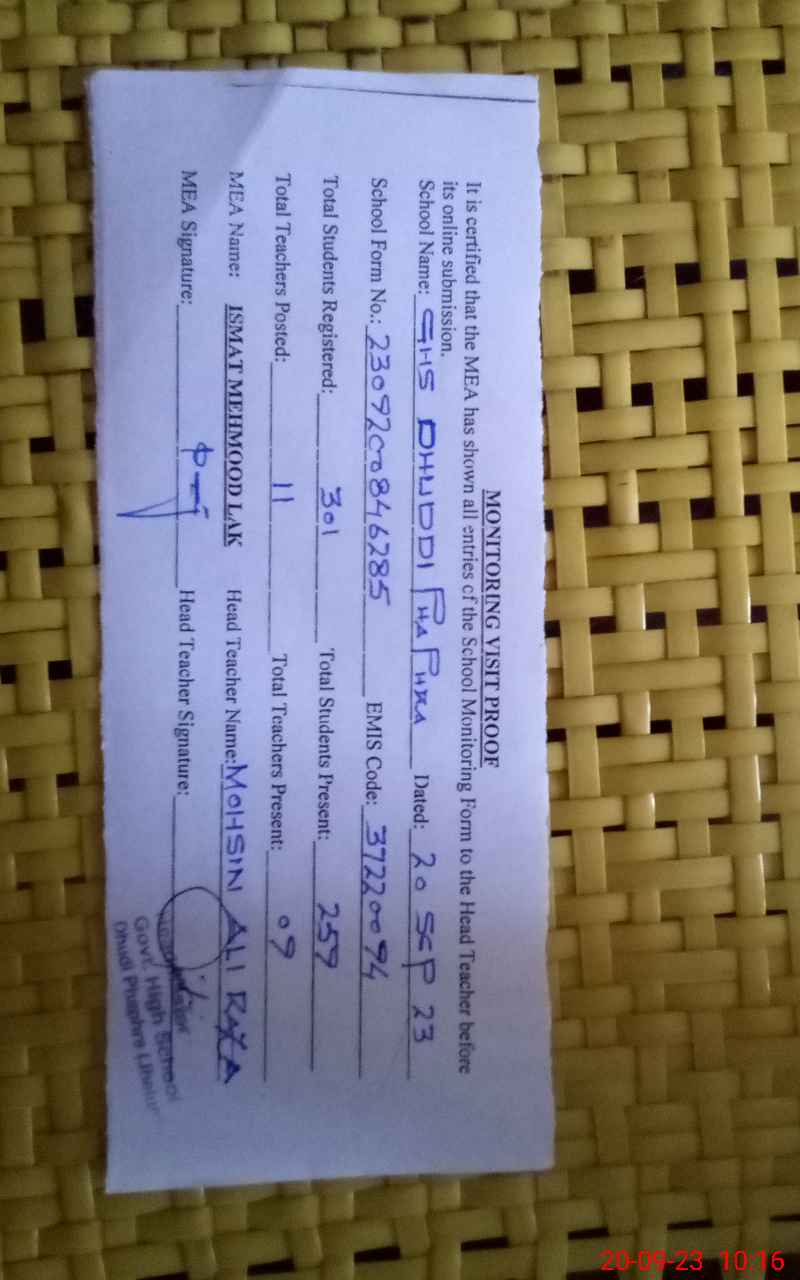 MONITORING VISIT PROOF
It is certified that the MEA has shown all entries of the School Monitoring Form to the Head Teacher before
its online submission.
School Name: GHS DHUDDI PHAPHRA Dated: 20 SEP 23
School Form No.: 2309200846285 EMIS Code: 37220094
Total Students Registered: 301 Total Students Present: 259
Total Teachers Posted: 11 Total Teachers Present: 09
MEA Name: ISMAT MEHMOOD LAK Head Teacher Name: MOHSIN ALI RAZA
MEA Signature: Head Teacher Signature:
Govt. High School
Dhudi Phaphra
20-09-23 10:16